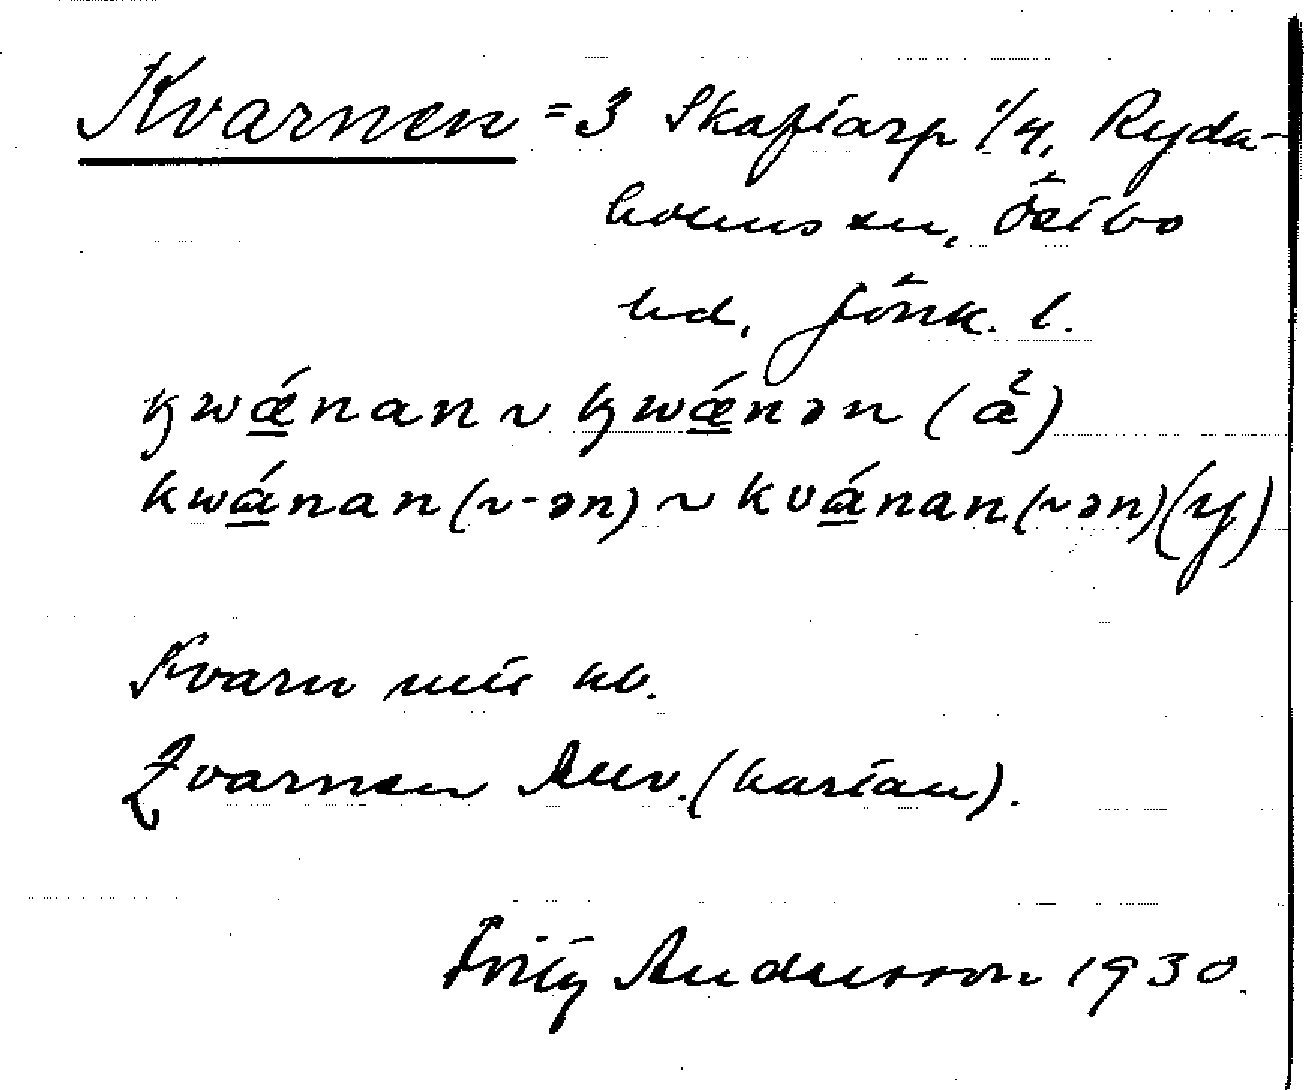 Kvarnen = 3 Skaftarp 1/4, Ryda-
holms sn, Östbo
hd, Jönk. l.
kwǽnan ~ kwǽnən (ä²)
kwánan (~ -ən) ~ kvánan (~ ən) (y)
Kvarn mtr hb.
Qvarnen Auv. (kartan).
Fritz Andersson 1930.